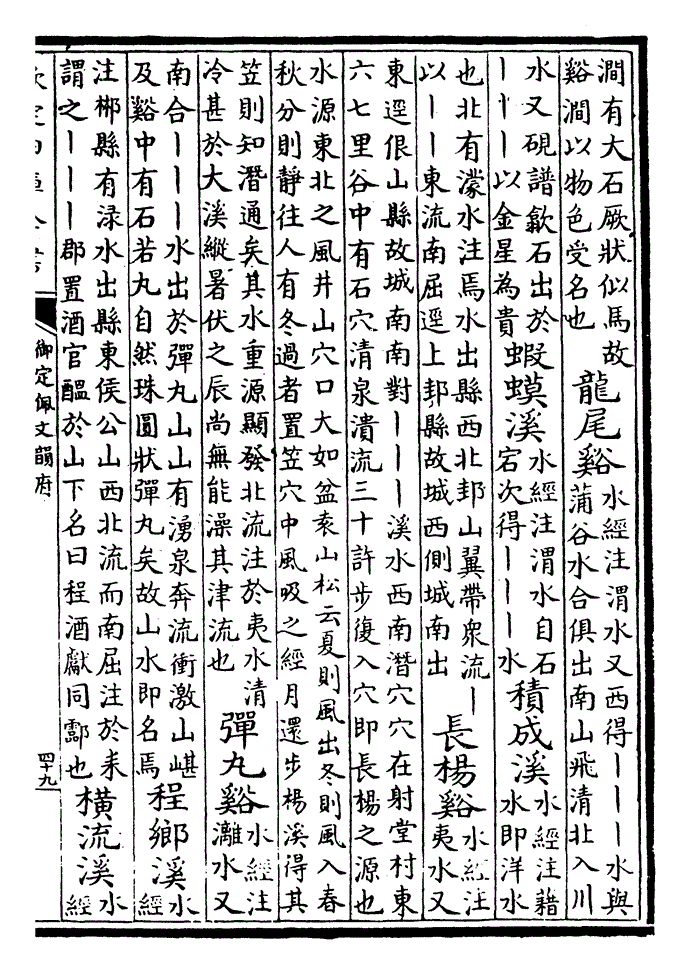 澗有大石厥狀似馬故
谿澗以物色受名也
龍尾谿
水經注渭水又西得一一一水與
蒲谷水合俱出南山飛清北入川
水又硯譜歙石出於
一一一以金星為貴
蝦蟆溪
水經注渭水自石
宕次得一一一水
積成溪
水經注藉
水即洋水
也北有濛水注焉水出縣西北邽山翼帶衆流一
以一一東流南屈逕上邽縣故城西側城南出
長楊谿
水經注
夷水又
東逕佷山縣故城南南對一一一溪水西南潛穴穴在射堂村東
六七里谷中有石穴清泉潰流三十許步復入穴即長楊之源也
水源東北之風井山穴口大如盆袁山松云夏則風出冬則風入春
秋分則靜往人有冬過者置笠穴中風吸之經月還步楊溪得其
笠則知潛通矣其水重源顯發北流注於夷水清
冷甚於大溪縱暑伏之辰尚無能澡其津流也
彈丸谿
水經注
灕水又
南合一一一水出於彈丸山山有湧泉奔流衝激山嵁
及谿中有石若丸自然珠圓狀彈丸矣故山水即名焉
程鄉溪
水
經
注郴縣有渌水出縣東侯公山西北流而南屈注於耒
謂之一一一郡置酒官醖於山下名曰程酒獻同酃也
橫流溪
水
經
御定佩文韻府
四十九